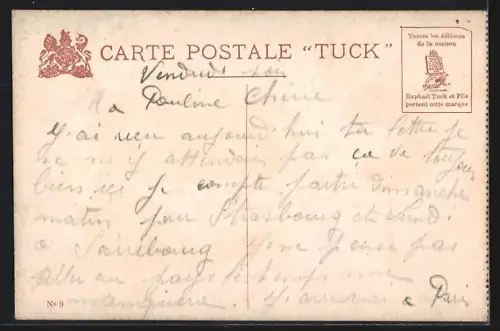 CARTE POSTALE "TUCK"
Toutes les éditions
de la maison
Raphaël Tuck et Fils
portent cette marque
Vendredi soir
Ma Pauline Chérie
J'ai reçu aujourd'hui ta lettre je
ne m'y attendais pas ça va toujours
bien ici je compte partir dimanche
matin pour Strasbourg et lundi
à Sarrebourg je ne pense pas
aller au pays le temps me
manquera. J'arriverai a Paris
No 9